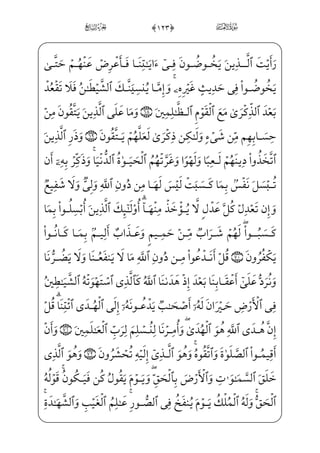 سُورَةُ الأَنْعَامِ ﴿١٢٣﴾ الجُزْءُ السَّابِعُ
رَأَيْتَ ٱلَّذِينَ يَخُوضُونَ فِىٓ ءَايَـٰتِنَا فَأَعْرِضْ عَنْهُمْ حَتَّىٰ
يَخُوضُوا۟ فِى حَدِيثٍ غَيْرِهِۦ ۚ وَإِمَّا يُنسِيَنَّكَ ٱلشَّيْطَـٰنُ فَلَا تَقْعُدْ
بَعْدَ ٱلذِّكْرَىٰ مَعَ ٱلْقَوْمِ ٱلظَّـٰلِمِينَ ۝٦٨ وَمَا عَلَى ٱلَّذِينَ يَتَّقُونَ مِنْ
حِسَابِهِم مِّن شَىْءٍ وَلَـٰكِن ذِكْرَىٰ لَعَلَّهُمْ يَتَّقُونَ ۝٦٩ وَذَرِ ٱلَّذِينَ
ٱتَّخَذُوا۟ دِينَهُمْ لَعِبًا وَلَهْوًا وَغَرَّتْهُمُ ٱلْحَيَوٰةُ ٱلدُّنْيَا ۚ وَذَكِّرْ بِهِۦٓ أَن
تُبْسَلَ نَفْسٌۢ بِمَا كَسَبَتْ لَيْسَ لَهَا مِن دُونِ ٱللَّهِ وَلِىٌّ وَلَا شَفِيعٌ
وَإِن تَعْدِلْ كُلَّ عَدْلٍ لَّا يُؤْخَذْ مِنْهَآ ۗ أُو۟لَـٰٓئِكَ ٱلَّذِينَ أُبْسِلُوا۟ بِمَا
كَسَبُوا۟ ۖ لَهُمْ شَرَابٌ مِّنْ حَمِيمٍ وَعَذَابٌ أَلِيمٌۢ بِمَا كَانُوا۟
يَكْفُرُونَ ۝٧٠ قُلْ أَنَدْعُوا۟ مِن دُونِ ٱللَّهِ مَا لَا يَنفَعُنَا وَلَا يَضُرُّنَا
وَنُرَدُّ عَلَىٰٓ أَعْقَابِنَا بَعْدَ إِذْ هَدَىٰنَا ٱللَّهُ كَٱلَّذِى ٱسْتَهْوَتْهُ ٱلشَّيَـٰطِينُ
فِى ٱلْأَرْضِ حَيْرَانَ لَهُۥٓ أَصْحَـٰبٌ يَدْعُونَهُۥٓ إِلَى ٱلْهُدَى ٱئْتِنَا ۗ قُلْ
إِنَّ هُدَى ٱللَّهِ هُوَ ٱلْهُدَىٰ ۖ وَأُمِرْنَا لِنُسْلِمَ لِرَبِّ ٱلْعَـٰلَمِينَ ۝٧١ وَأَنْ
أَقِيمُوا۟ ٱلصَّلَوٰةَ وَٱتَّقُوهُ ۚ وَهُوَ ٱلَّذِىٓ إِلَيْهِ تُحْشَرُونَ ۝٧٢ وَهُوَ ٱلَّذِى
خَلَقَ ٱلسَّمَـٰوَٰتِ وَٱلْأَرْضَ بِٱلْحَقِّ ۖ وَيَوْمَ يَقُولُ كُن فَيَكُونُ ۚ قَوْلُهُ
ٱلْحَقُّ ۚ وَلَهُ ٱلْمُلْكُ يَوْمَ يُنفَخُ فِى ٱلصُّورِ ۚ عَـٰلِمُ ٱلْغَيْبِ وَٱلشَّهَـٰدَةِ ۚ